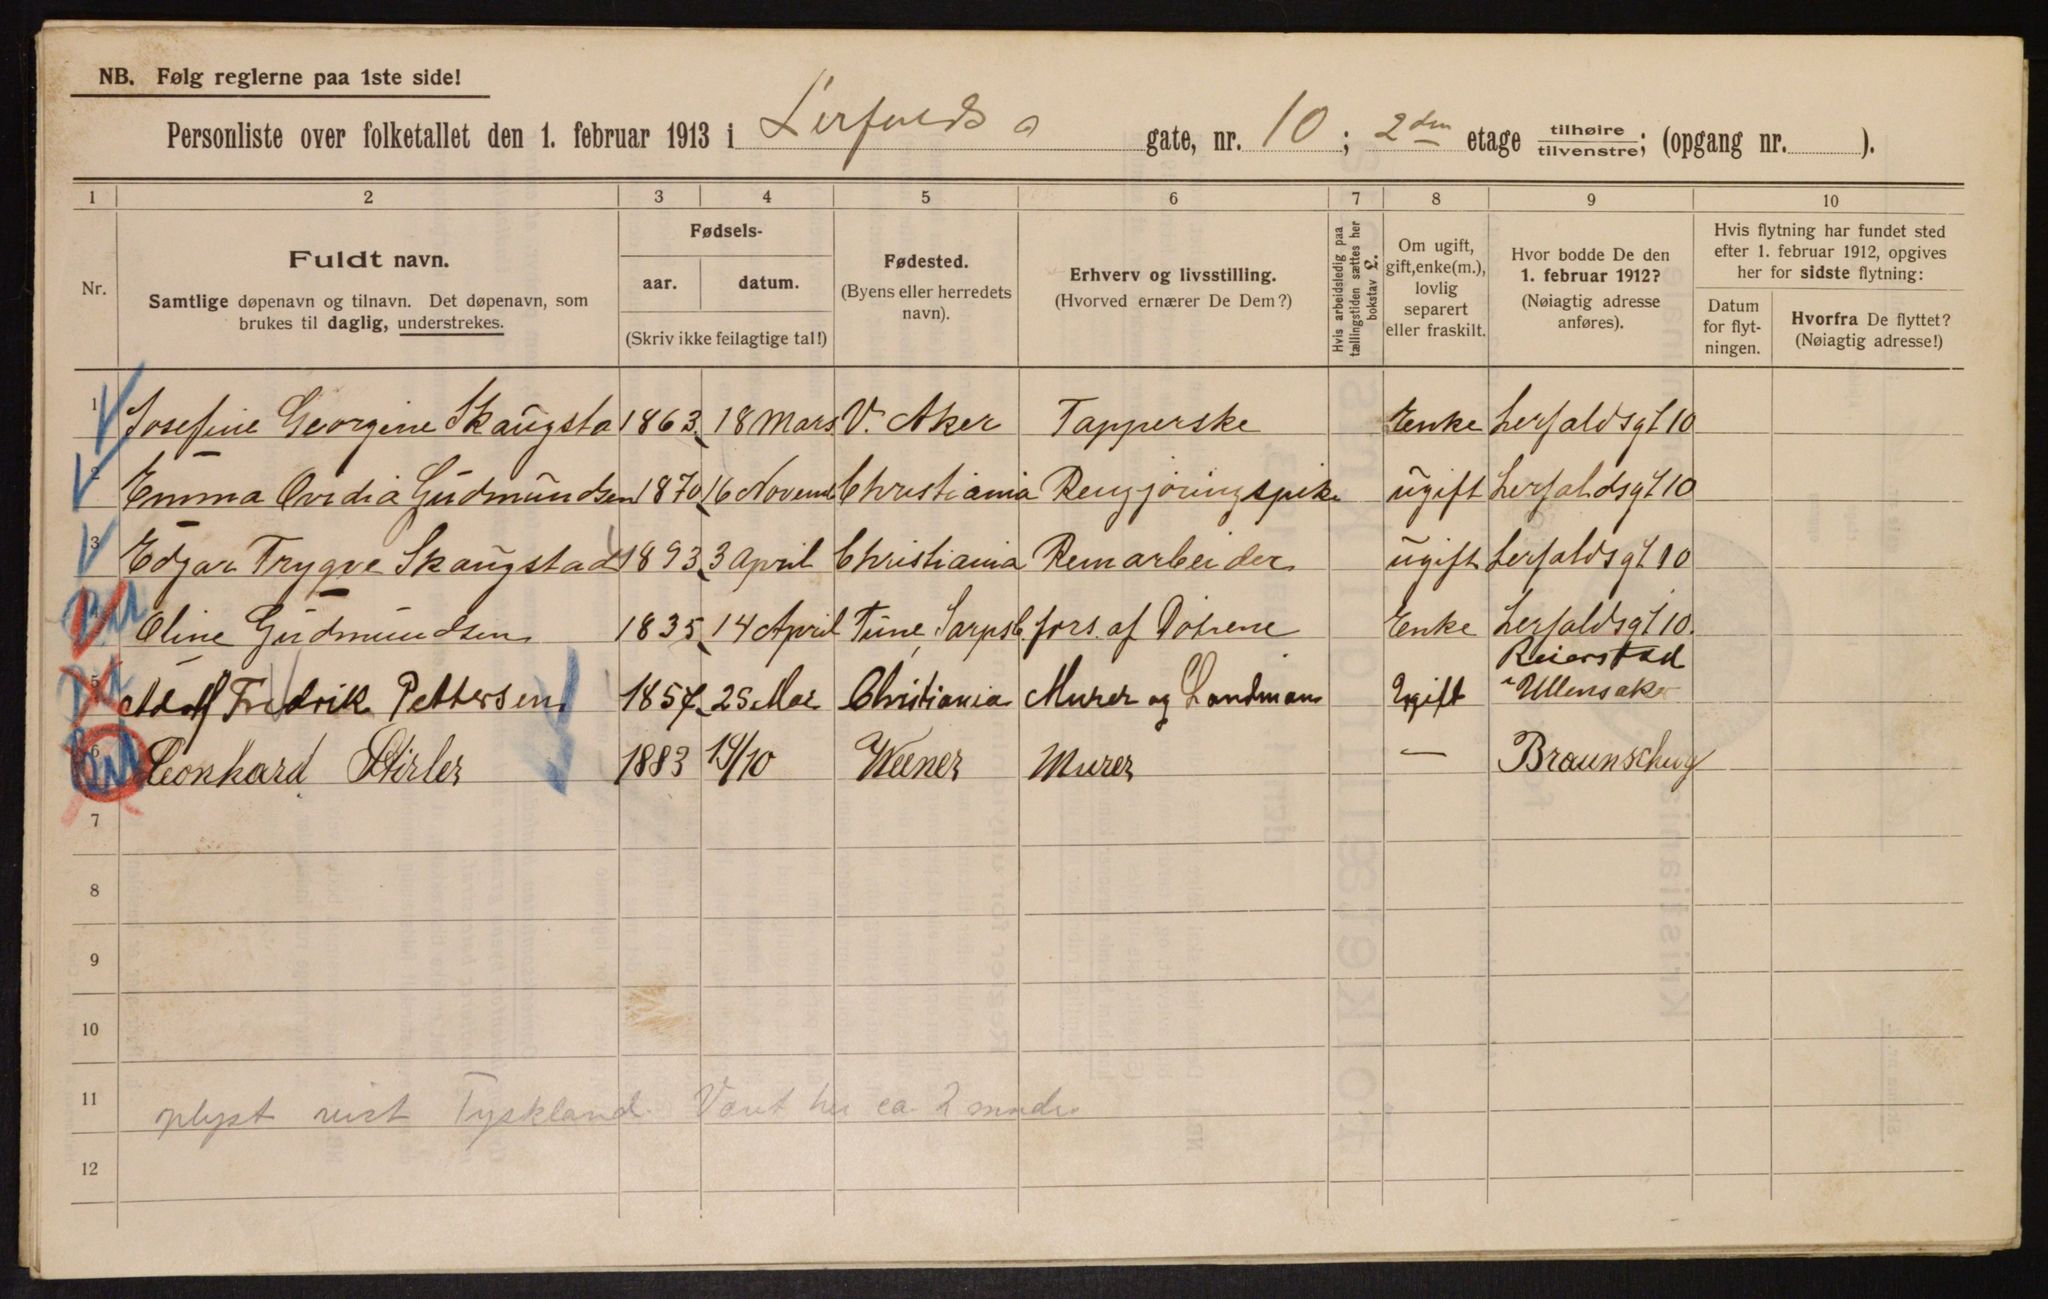 NB. Følg reglerne paa 1ste side!
Personliste over folketallet den 1. februar 1913 i Lerfalds gate, nr. 10; 2den etage tilhøire/tilvenstre; (opgang nr. ).
1 2 3 4 5 6 7 8 9 10
Nr.
Fuldt navn.
Samtlige døpenavn og tilnavn. Det døpenavn, som
brukes til daglig, understrekes.
Fødsels-
aar. datum.
(Skriv ikke feilagtige tal!)
Fødested.
(Byens eller herredets
navn).
Erhverv og livsstilling.
(Hvorved ernærer De Dem?)
Hvis arbeidsledig paa
tællingstiden sættes her
bokstav L.
Om ugift,
gift, enke(m.),
lovlig
separert
eller fraskilt.
Hvor bodde De den
1. februar 1912?
(Nøiagtig adresse
anføres).
Hvis flytning har fundet sted
efter 1. februar 1912, opgives
her for sidste flytning:
Datum
for flyt-
ningen.
Hvorfra De flyttet?
(Nøiagtig adresse!)
1 Josefine Georgine Skaugsta 1863 18 Mars V. Aker Tapperske Enke Lerfaldsgt 10
2 Emma Ovidia Gudmundsen 1870 16 Novemb Christiania Rengjøringspike ugift Lerfaldsgt 10
3 Edgar Trygve Skaugstad 1893 3 April Christiania Remarbeider ugift Lerfaldsgt 10
Oline Gudmundsen 1835 14 April Tune, Sarpsb. fors. af Døtrene Enke Lerfaldsgt 10.
Reierstad
5 Adolf Fredrik Pettersen 1857 25 Mai Christiania Murer og Landman Ugift Ullensaker
6 Leonhard Stirler 1883 19/10 Weener Murer — Braunschwg
7
8
9
10
11 oplyst reist Tyskland. Været her ca. 2 mndr.
12